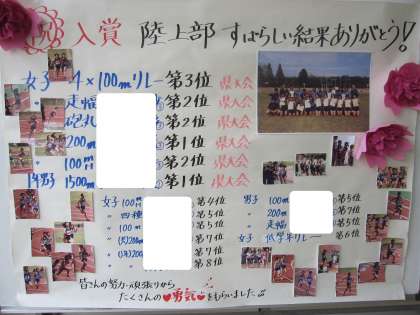 入賞 陸上部 すばらしい結果ありがとう!
女子 4×100mリレー 第3位 県大会
〃 走幅 ② 第2位 県大会
〃 砲丸 第2位 県大会
〃 200m ① 第1位 県大会
〃 100m ② 第2位 県大会
1年男子 1500m ① 第1位 県大会
女子 100m 第4位
〃 四種 第5位
〃 第5位
〃 第7位
〃 200m 第7位
〃 第8位
男子 100m 第5位
〃 200m 第7位
〃 走幅 第5位
女子 低学年リレー 第6位
皆さんの努力・頑張りから
たくさんの♥勇気♥をもらいました♫